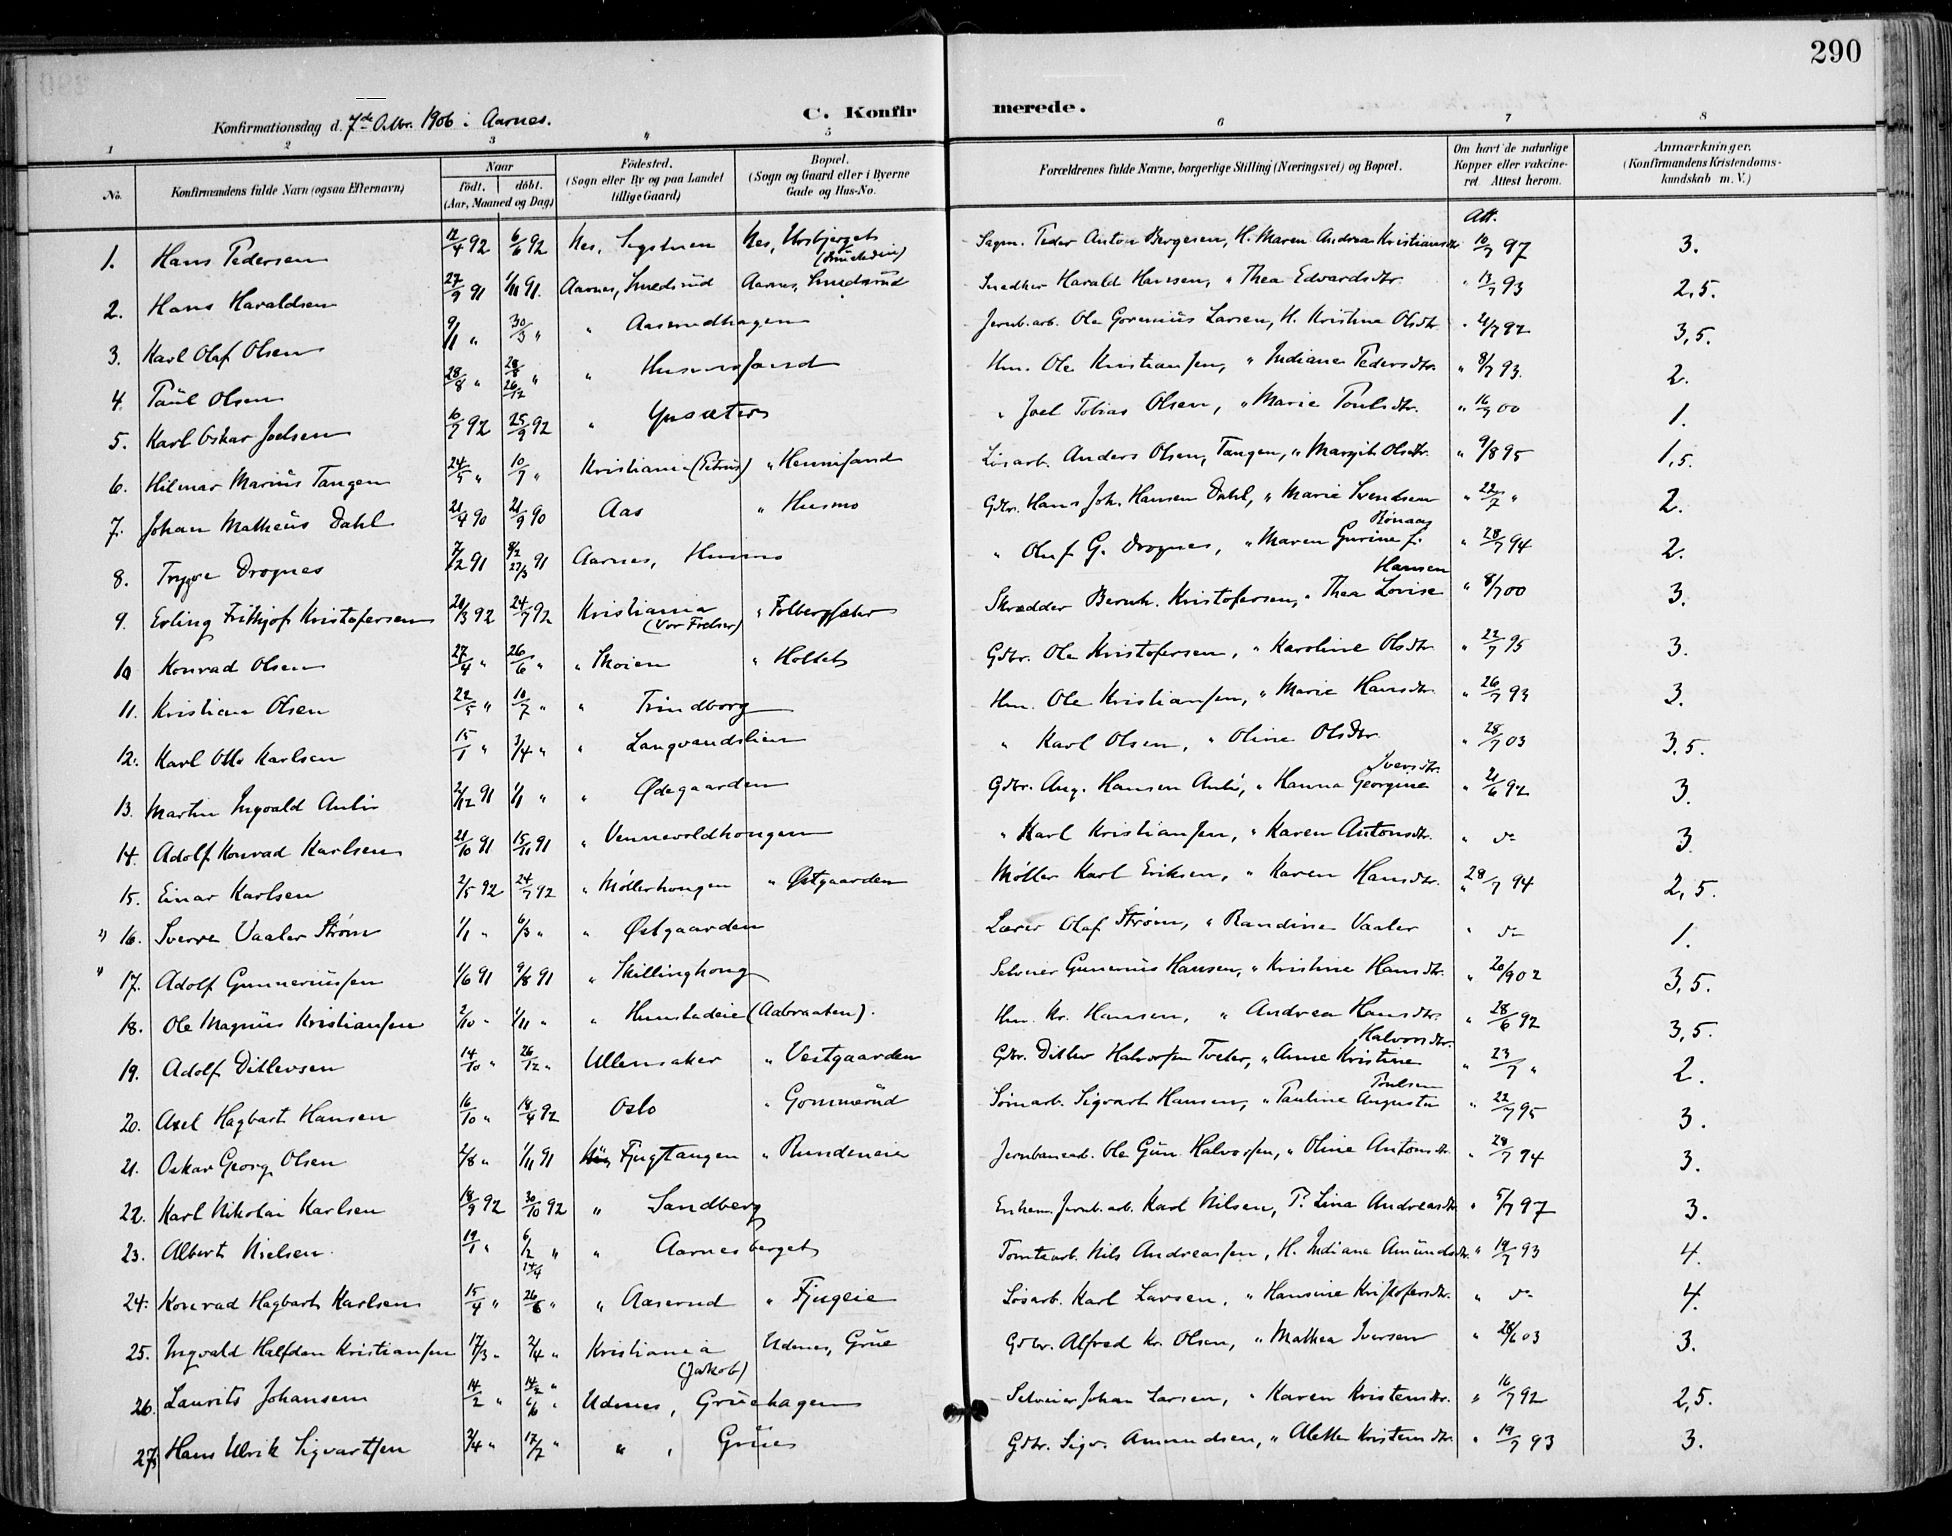 290
Konfirmationsdag d. 7de Oktbr. 1906 i Aarnes.
C. Konfirmerede.
1 2 3 4 5 6 7 8
No.
Konfirmandens fulde Navn (ogsaa Efternavn)
Naar
födt. döbt.
(Aar, Maaned og Dag)
Födested.
(Sogn eller By og paa Landet
tillige Gaard)
Bopæl.
(Sogn og Gaard eller i Byerne
Gade og Hus-No.
Forældrenes fulde Navne, borgerlige Stilling (Næringsvei) og Bopæl.
Om havt de naturlige
Kopper eller vakcine-
ret. Attest herom.
Anmærkninger.
(Konfirmandens Kristendoms-
kundskab m. V.)
Att.
1. Hans Pedersen 12/4 92 6/6 92 Nes, Nes, Sagm. Peder Anton Bergesen, H. Maren Andrea Kristiansdtr 10/7 97 3.
2. Hans Haraldsen 27/9 91 1/11 91. Aarnes, Smedsrud Aarnes, Smedsrud Snedker Harald Hansen, " Thea Edvardsdtr. " 13/7 93 2,5.
3. Karl Olaf Olsen 9/1 " 30/3 " " Aaserudhagen Jernb.arb. Ole Larsen, H. Kristine Olsdtr. " 21/7 92 3,5.
4. Paul Olsen 28/8 " 28/8 26/12 " " Hm. Ole Kristiansen, " Indiana Pedersdtr. " 8/7 93. 2.
5. Karl Oskar Joelsen 10/7 92 25/9 92 " " Joel Tobias Olsen, " Marie Poulsdtr. " 16/7 00 1.
6. Hilmar Marius Tangen 24/5 " 10/7 " Kristiania (Petrus) " Løsarb. Anders Olsen, Tangen, " Margit Olsdtr. " 9/8 95 1,5.
7. Johan Matheus Dahl 21/4 90 21/9 90 Aas " Husmo Gdbr. Hans Joh. Hansen Dahl, " Marie Svendsen " 22/7 " 2.
8. Trygve Drognes 7/2 91 8/2 27/3 91 Aarnes, Husmo " Oluf G. Drognes, " Maren Gurine f. Rønaas " 28/7 94 2.
9. Erling Frithjof Kristofersen 20/3 92 24/7 92 Kristiania (Vor Frelser) " Skrædder Bernh. Kristofersen, " Thea Lovise Hansen " 8/7 00 3.
10 Konrad Olsen 27/4 " 26/6 " " Moien " Holtet Gdbr. Ole Kristofersen, " Karoline Olsdtr. " 22/7 95 3.
11. Kristian Olsen 22/5 " 10/7 " " Trindborg Hm. Ole Kristiansen, " Marie Hansdtr. " 26/7 93 3.
12. Karl Otto Karlsen 15/1 " 3/4 " " Langvandslien " Karl Olsen, " Oline Olsdtr. " 28/7 03 3,5.
13. Martin Ingvald Aulie 2/12 91 1/1 " " Ødegaarden Gdbr. Aug. Hansen Auli, " Hanna Georgine Iversdtr. " 21/6 92 3.
14. Adolf Konrad Karlsen 21/10 91 15/11 91 " Vennevoldhougen " Karl Kristiansen, " Karen Antonsdtr. " do 3.
15. Einar Karlsen 2/5 92 24/7 92 " Møllerhougen " Østgaarden Møller Karl Eriksen, " Karen Hansdtr. " 28/7 94 2,5.
" 16. Sverre Vaaler Strøm 1/1 " 6/3 " " Østgaarden Lærer Olaf Strøm, " Randine Vaaler " do 1.
" 17. Adolf Gunneriussen 1/6 91 9/8 91 " Skillinghoug Selveier Gunerius Hansen, " Kristine Hansdtr. " 20/9 02 3,5.
18. Ole Magnus Kristiansen 2/10 " 1/11 " " Hunstadeie (Aabraaten). Hm. Kr. Hansen, " Andrea Hansdtr. " 28/6 92 3,5.
19. Adolf Ditlevsen 14/10 " 26/12 " Ullensaker " Vestgaarden Gdbr. Ditlev Halvorsen Tveter, " Anne Kristine Halvorsdtr. " 23/7 " 2.
20. Axel Hagbart Hansen 16/10 " 18/4 92 Oslo " Gommerud Sigvart Hansen, " Pauline Augusta Poulsen " 22/7 95 3.
21. Oskar Georg Olsen 2/8 " 1/11 91 Fjugstangen " Rundeneie Jernbanearb. Ole Gun. Halvorsen, " Oline Antonsdtr. " 28/7 94 3.
22. Karl Nikolai Karlsen 18/9 92 30/10 92 " Sandberg Enkem. Jernb.arb. Karl Nilsen, P. Lina Andreasdtr. " 5/7 97 3.
23. Albert Nielsen. 19/1 " 6/2 24/4 " " Aarnesberget Tomtearb. Nils Andreassen, H. Indiana Amundsdtr. " 19/7 93 4.
24. Konrad Hagbart Karlsen 15/4 " 26/6 " " Aaserud " Fjugeie Løsarb. Karl Larsen, " Hansine Kristofersdtr. " do 4.
25. Ingvald Halfdan Kristiansen 17/3 " 2/4 " Kristiania (Jakob) Udenes, Grue Gdbr. Alfred Kr. Olsen, " Mathea Iversen " 28/6 03 3.
26. Laurits Johansen 14/2 " 14/2 " 6/6 " Udenes, Gruehagen Selveier Johan Larsen, " Karen Kristensdtr. " 16/7 92 2,5.
27. Hans Ulrik Sigvartsen 2/4 " 17/7 " " , Grue Gdbr. Sigv. Amundsen, " Alette Kristensdtr. " 19/7 93 3.